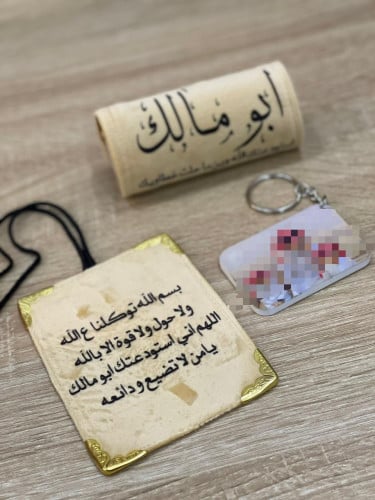 ابو مالك
بسم الله توكلنا ع الله
ولا حول ولا قوة الا بالله
اللهم اني استودعتك ابو مالك
يامن لا تضيع ودائعه